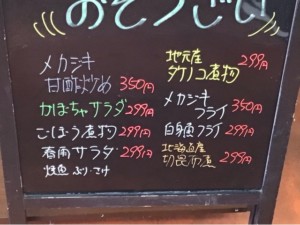 おそうざい
メカジキ
甘酢炒め 350円
かぼちゃサラダ 299円
ごぼう煮物 299円
春雨サラダ 299円
焼魚 ぶり・さけ
地元産 299円
タケノコ煮物
メカジキ
フライ 350円
白身魚フライ 299円
北海道産
切昆布煮 299円